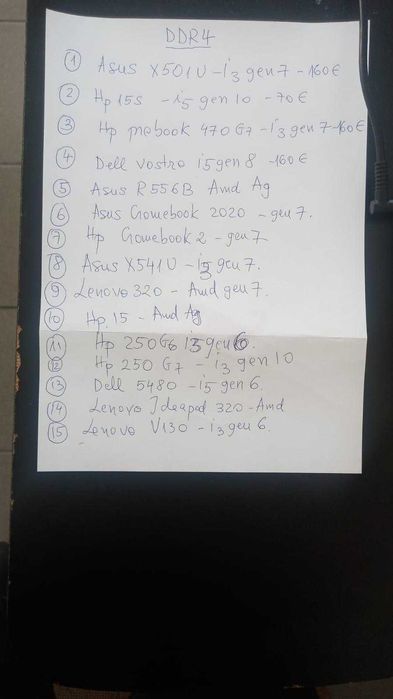 DDR4
1 Asus X501U - i3 gen 7 - 160€
2 Hp 15s - i5 gen 10 - 70€
3 Hp probook 470 G7 - i3 gen 7 - 160€
4 Dell vostro i5 gen 8 - 160€
5 Asus R556B Amd A9
6 Asus Gomebook 2020 - gen 7.
7 Hp Gomebook 2 - gen 7
8 Asus X541U - i3 gen 7.
9 Lenovo 320 - Amd gen 7.
10 Hp 15 - Amd A9
11 Hp 250 G6 i3 gen 6.
12 Hp 250 G7 - i3 gen 10
13 Dell 5480 - i5 gen 6.
14 Lenovo Ideapad 320 - Amd
15 Lenovo V130 - i3 gen 6.